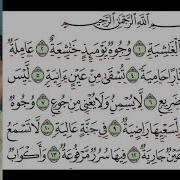 بِسْمِ اللَّهِ الرَّحْمَٰنِ الرَّحِيمِ
الْغَاشِيَةِ ١ وُجُوهٌ يَوْمَئِذٍ خَاشِعَةٌ ٢ عَامِلَةٌ
نَارًا حَامِيَةً ٤ تُسْقَىٰ مِنْ عَيْنٍ آنِيَةٍ ٥ لَيْسَ
ضَرِيعٍ ٦ لَا يُسْمِنُ وَلَا يُغْنِي مِنْ جُوعٍ ٧ وُجُوهٌ
لِسَعْيِهَا رَاضِيَةٌ ٩ فِي جَنَّةٍ عَالِيَةٍ ١٠ لَا تَسْمَعُ
عَيْنٌ جَارِيَةٌ ١٢ فِيهَا سُرُرٌ مَرْفُوعَةٌ ١٣ وَأَكْوَابٌ